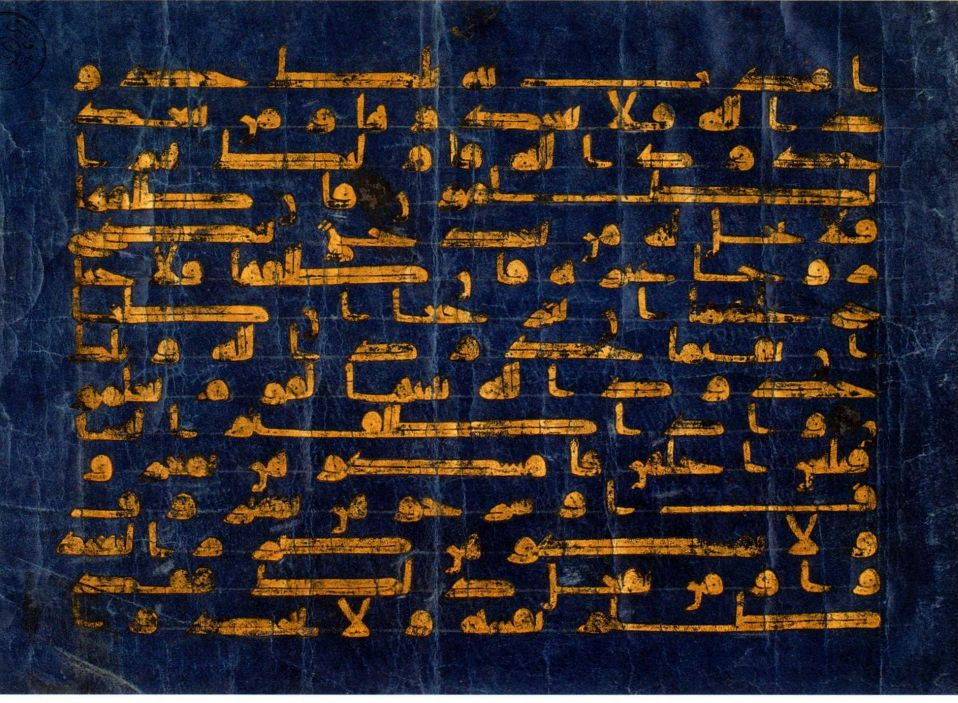 ا فتدت به تلك حدو
د الله فلا تعتدوها ومن يتعد
حدود الله فاولئك هم ا
لظلمون فان طلقها
فلا تحل له من بعد حتى تنكح
زوجا غيره فان طلقها فلا جنا
ح عليهما ان يتراجعا ان ظنا
ان يقيما حدود الله وتلك
حدود الله يبينها لقوم يعلمو
ن واذا طلقتم النسا
فبلغن اجلهن فامسكوهن بمعرو
ف او سرحوهن بمعروف
ولا تمسكوهن ضرارا لتعتد
وا ومن يفعل ذلك فقد
ظلم نفسه ولا تتخذوا